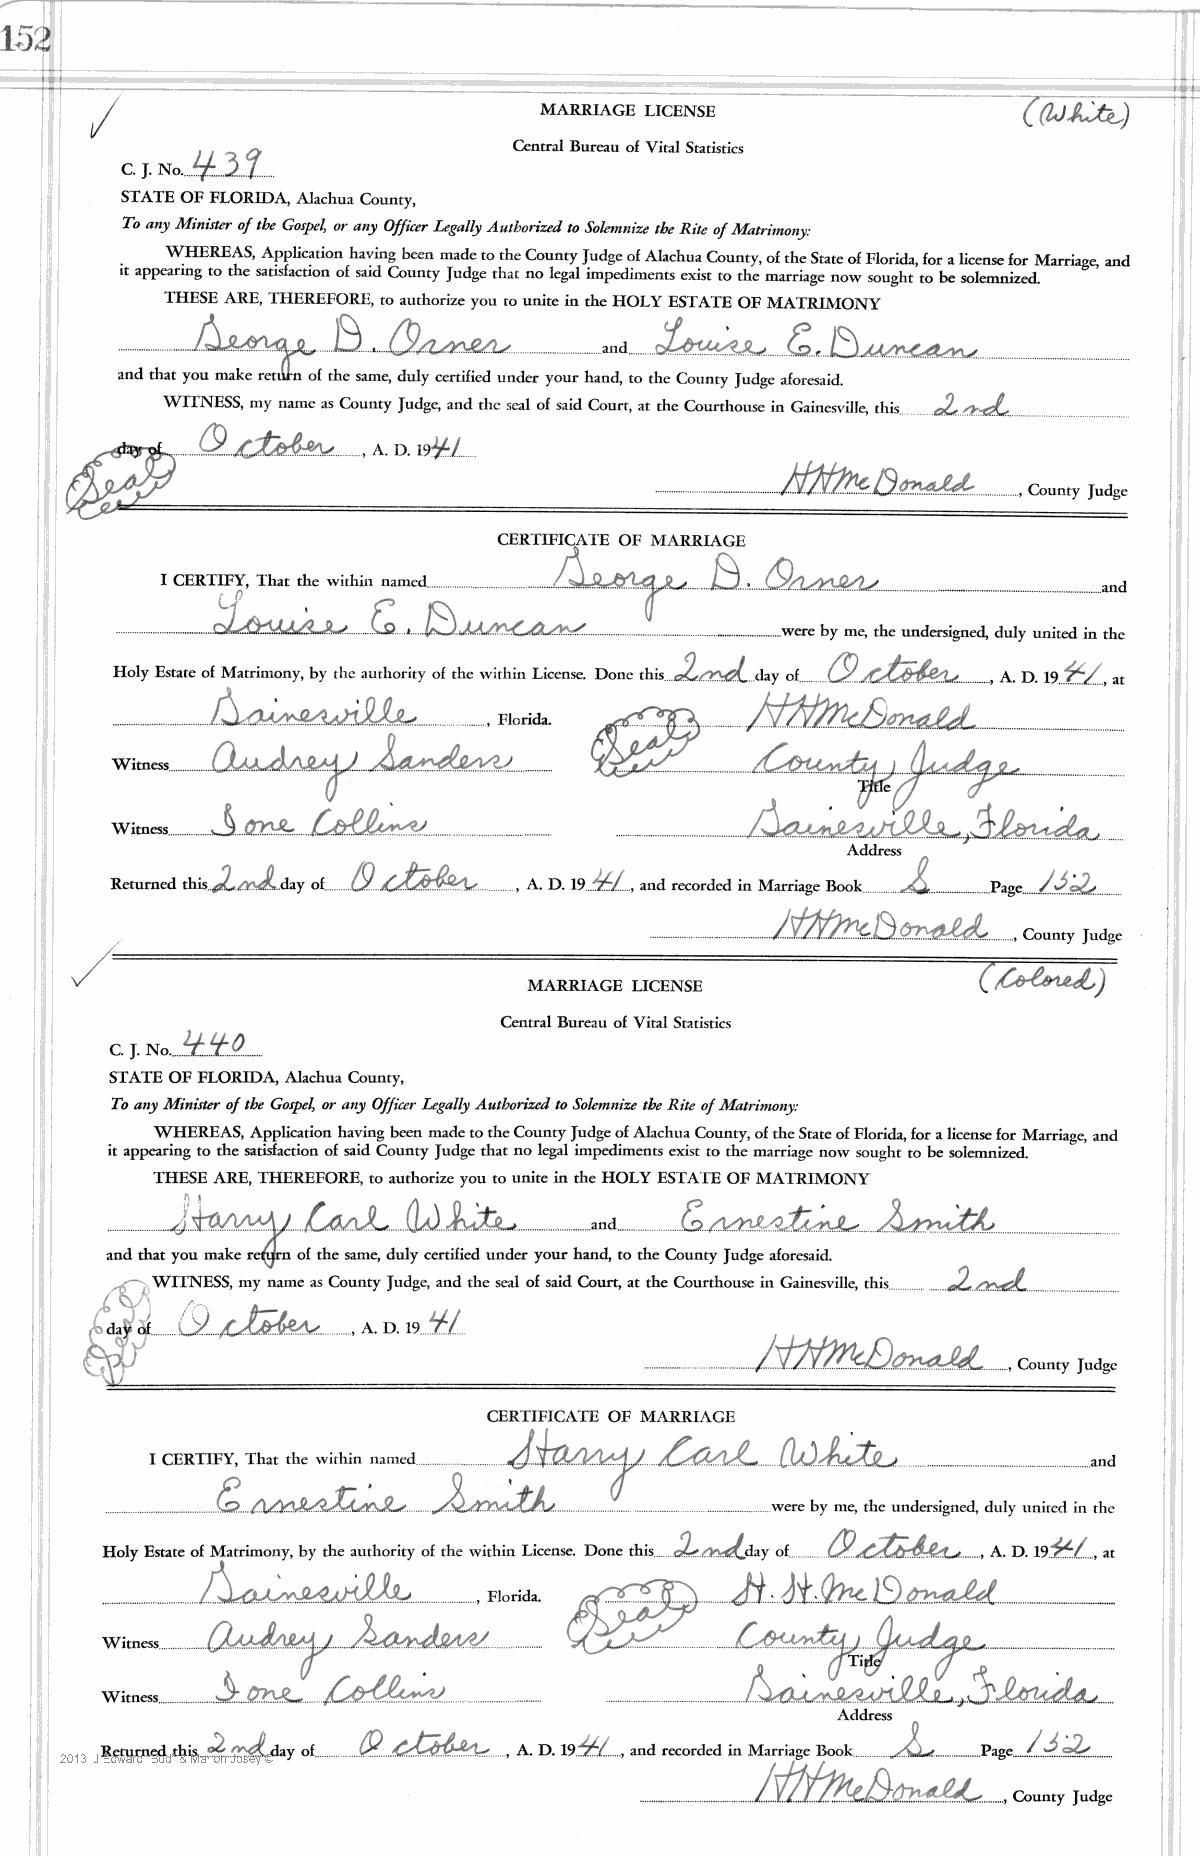 152
MARRIAGE LICENSE (White)
Central Bureau of Vital Statistics
C. J. No. 439
STATE OF FLORIDA, Alachua County,
To any Minister of the Gospel, or any Officer Legally Authorized to Solemnize the Rite of Matrimony:
WHEREAS, Application having been made to the County Judge of Alachua County, of the State of Florida, for a license for Marriage, and
it appearing to the satisfaction of said County Judge that no legal impediments exist to the marriage now sought to be solemnized.
THESE ARE, THEREFORE, to authorize you to unite in the HOLY ESTATE OF MATRIMONY
George D. Orner and Louise E. Duncan
and that you make return of the same, duly certified under your hand, to the County Judge aforesaid.
WITNESS, my name as County Judge, and the seal of said Court, at the Courthouse in Gainesville, this 2nd
day of October, A. D. 1941
Seal
HHMcDonald, County Judge
CERTIFICATE OF MARRIAGE
I CERTIFY, That the within named George D. Orner and
Louise E. Duncan were by me, the undersigned, duly united in the
Holy Estate of Matrimony, by the authority of the within License. Done this 2nd day of October, A. D. 1941, at
Gainesville, Florida. Seal HHMcDonald
Witness Audrey Sanders County Judge
Title
Witness Ione Collins Gainesville, Florida
Address
Returned this 2nd day of October, A. D. 1941, and recorded in Marriage Book S Page 152
HHMcDonald, County Judge
MARRIAGE LICENSE (Colored)
Central Bureau of Vital Statistics
C. J. No. 440
STATE OF FLORIDA, Alachua County,
To any Minister of the Gospel, or any Officer Legally Authorized to Solemnize the Rite of Matrimony:
WHEREAS, Application having been made to the County Judge of Alachua County, of the State of Florida, for a license for Marriage, and
it appearing to the satisfaction of said County Judge that no legal impediments exist to the marriage now sought to be solemnized.
THESE ARE, THEREFORE, to authorize you to unite in the HOLY ESTATE OF MATRIMONY
Harry Carl White and Ernestine Smith
and that you make return of the same, duly certified under your hand, to the County Judge aforesaid.
WITNESS, my name as County Judge, and the seal of said Court, at the Courthouse in Gainesville, this 2nd
day of October, A. D. 1941
Seal
HHMcDonald, County Judge
CERTIFICATE OF MARRIAGE
I CERTIFY, That the within named Harry Carl White and
Ernestine Smith were by me, the undersigned, duly united in the
Holy Estate of Matrimony, by the authority of the within License. Done this 2nd day of October, A. D. 1941, at
Gainesville, Florida. Seal H. H. McDonald
Witness Audrey Sanders County Judge
Title
Witness Ione Collins Gainesville, Florida
Address
Returned this 2nd day of October, A. D. 1941, and recorded in Marriage Book S Page 152
2013 J Edward "Bud" & Marion Josey ©
HHMcDonald, County Judge